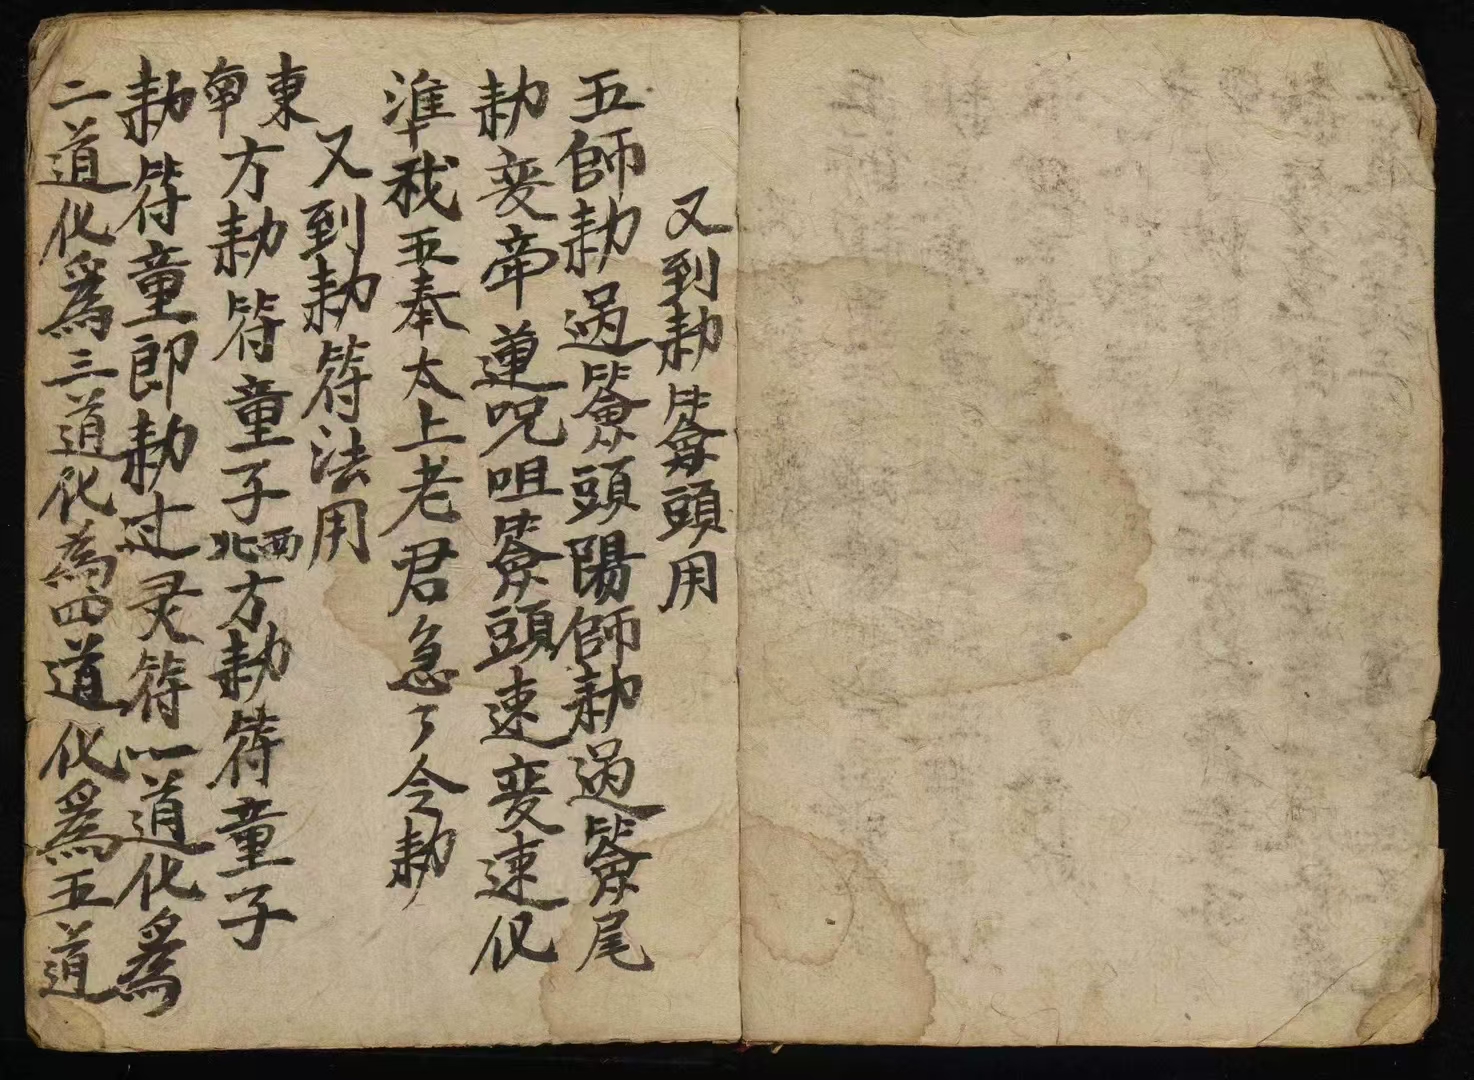 又到勅簽頭用
五師勅過簽頭陽師勅過簽尾
勅変帝蓮呪咀簽頭速変速化
準我五奉太上老君急了令勅
又到勅符法用
東南方勅符童子西北方勅符童子
勅符童郎勅过灵符一道化為
二道化爲三道化為四道化爲五道